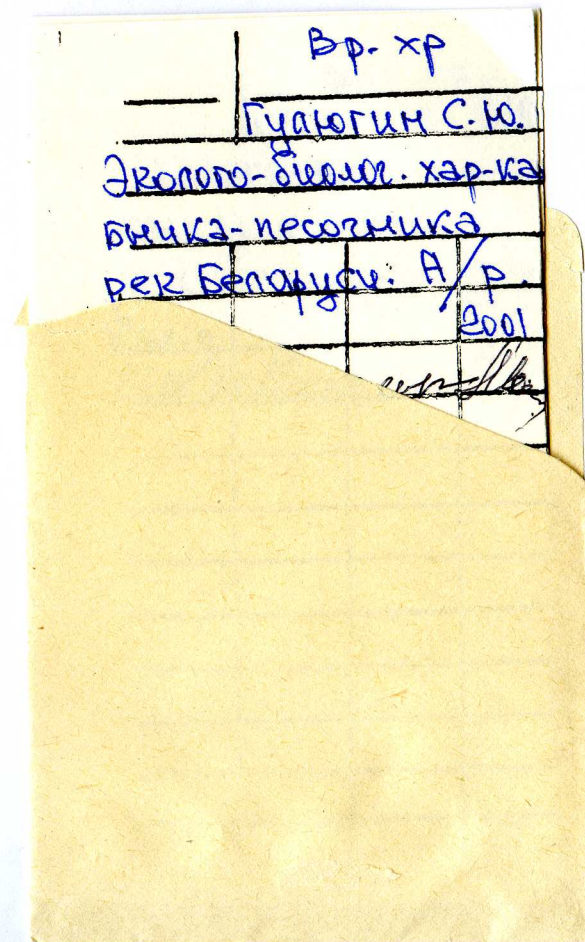 Вр. хр
Гулюгин С.Ю.
Эколого-биолог. хар-ка
бычка-песочника
рек Беларуси. А/р.
2001